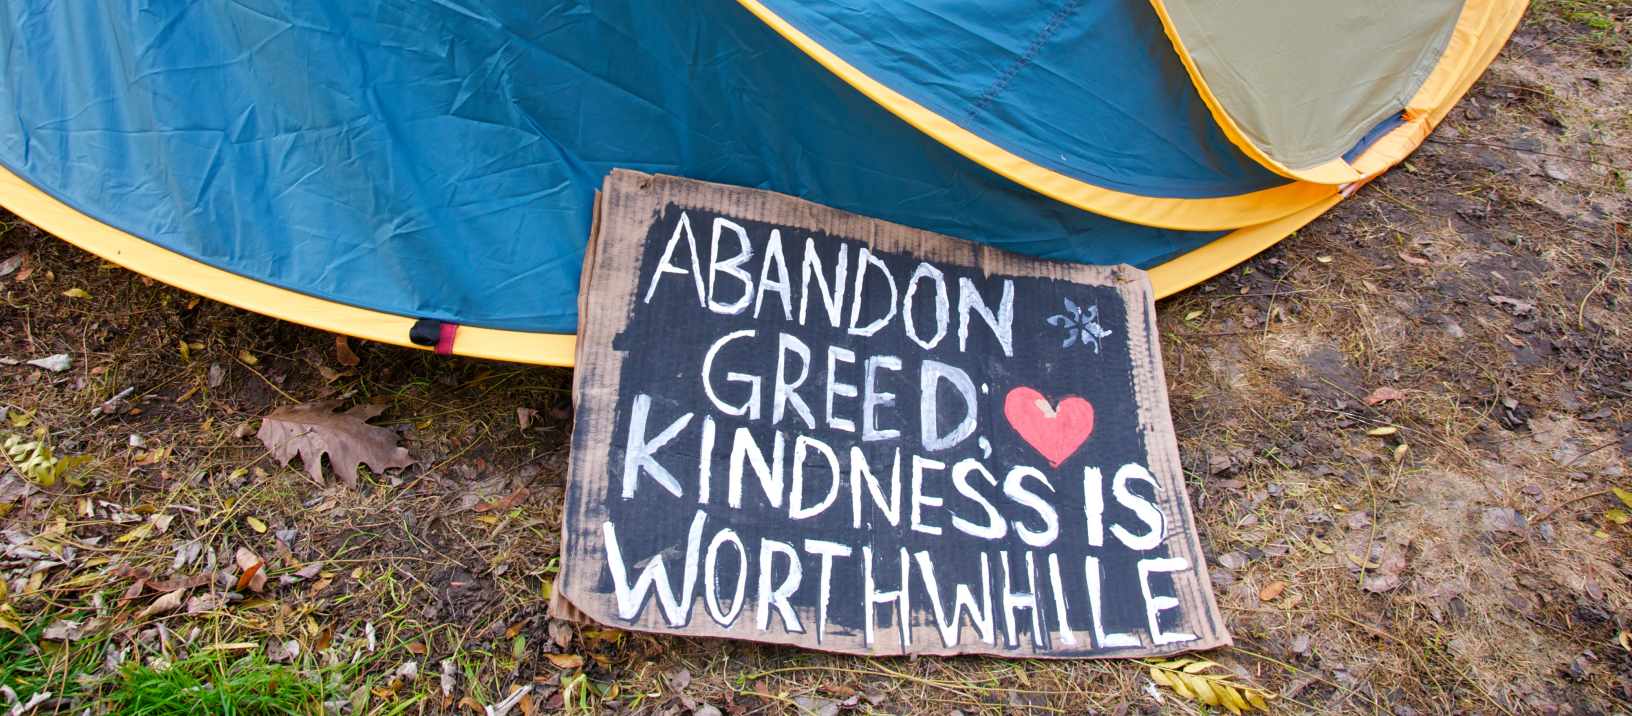 ABANDON
GREED;
KINDNESS IS
WORTHWHILE